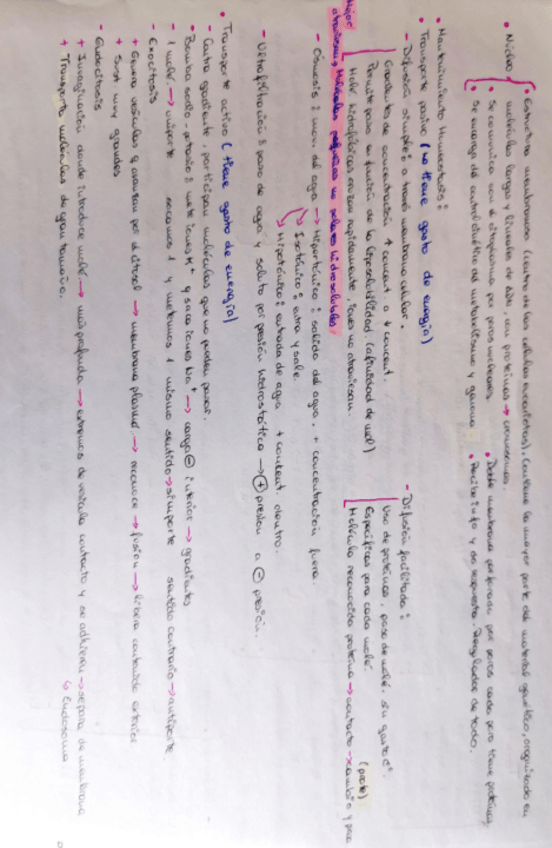 • Núcleo • Estructura membranosa (centro de las células eucariotas). Contiene la mayor parte del material genético, organizado en
moléculas largas y lineales de ADN, con proteínas → cromosomas.
• Se comunica con el citoplasma por poros nucleares. • Doble membrana perforada por poros cada poro tiene proteínas
• Se encarga del control del metabolismo y genoma. • Recibe info y da respuesta. Regulador de todo.
• Mantenimiento Homeostasis:
• Transporte pasivo (no tiene gasto de energía)
- Difusión simple: a través membrana celular.
Gradientes de concentración + concent. a concent.
Permite paso en función de la liposolubilidad. (afinidad de mol)
Molé hidrofóbicas cruzan rápidamente, iones no atraviesan
Mejor atraviesan Moléculas pequeñas no polares hidrosolubles.
- Difusión facilitada:
Uso de proteínas, paso de molé. sin gasto E.
Específicas para cada molé. (prote)
Molécula reconocida proteína → contacto → cambio y pasa
- Ósmosis: mov. del agua → Hipertónico: salida del agua, + concentración fuera.
Isotónico: entra y sale.
Hipotónico: entrada de agua + concent. dentro.
- Ultrafiltración: paso de agua y soluto por presión hidrostática → + presión a - presión.
• Transporte activo (tiene gasto de energía)
- Contra gradiente, participan moléculas que no pueden pasar.
- Bomba sodio-potasio: mete iones K+ y saca iones Na+ → carga - interior → gradientes
- 1 molé. → uniporte sacamos 1 y metemos 1 mismo sentido → simporte sentido contrario → antiporte.
- Exocitosis
+ Genera vesículas q avanzan por el citosol → membrana plasmá. → reconoce → fusión → libera contenido exterior
+ Son muy grandes
- Endocitosis
+ Invaginación donde introduce molé. → más profunda → extremos de vesícula contacto y se adhieren → separa de membrana
↳ Endosoma.
+ Transporta moléculas de gran tamaño.